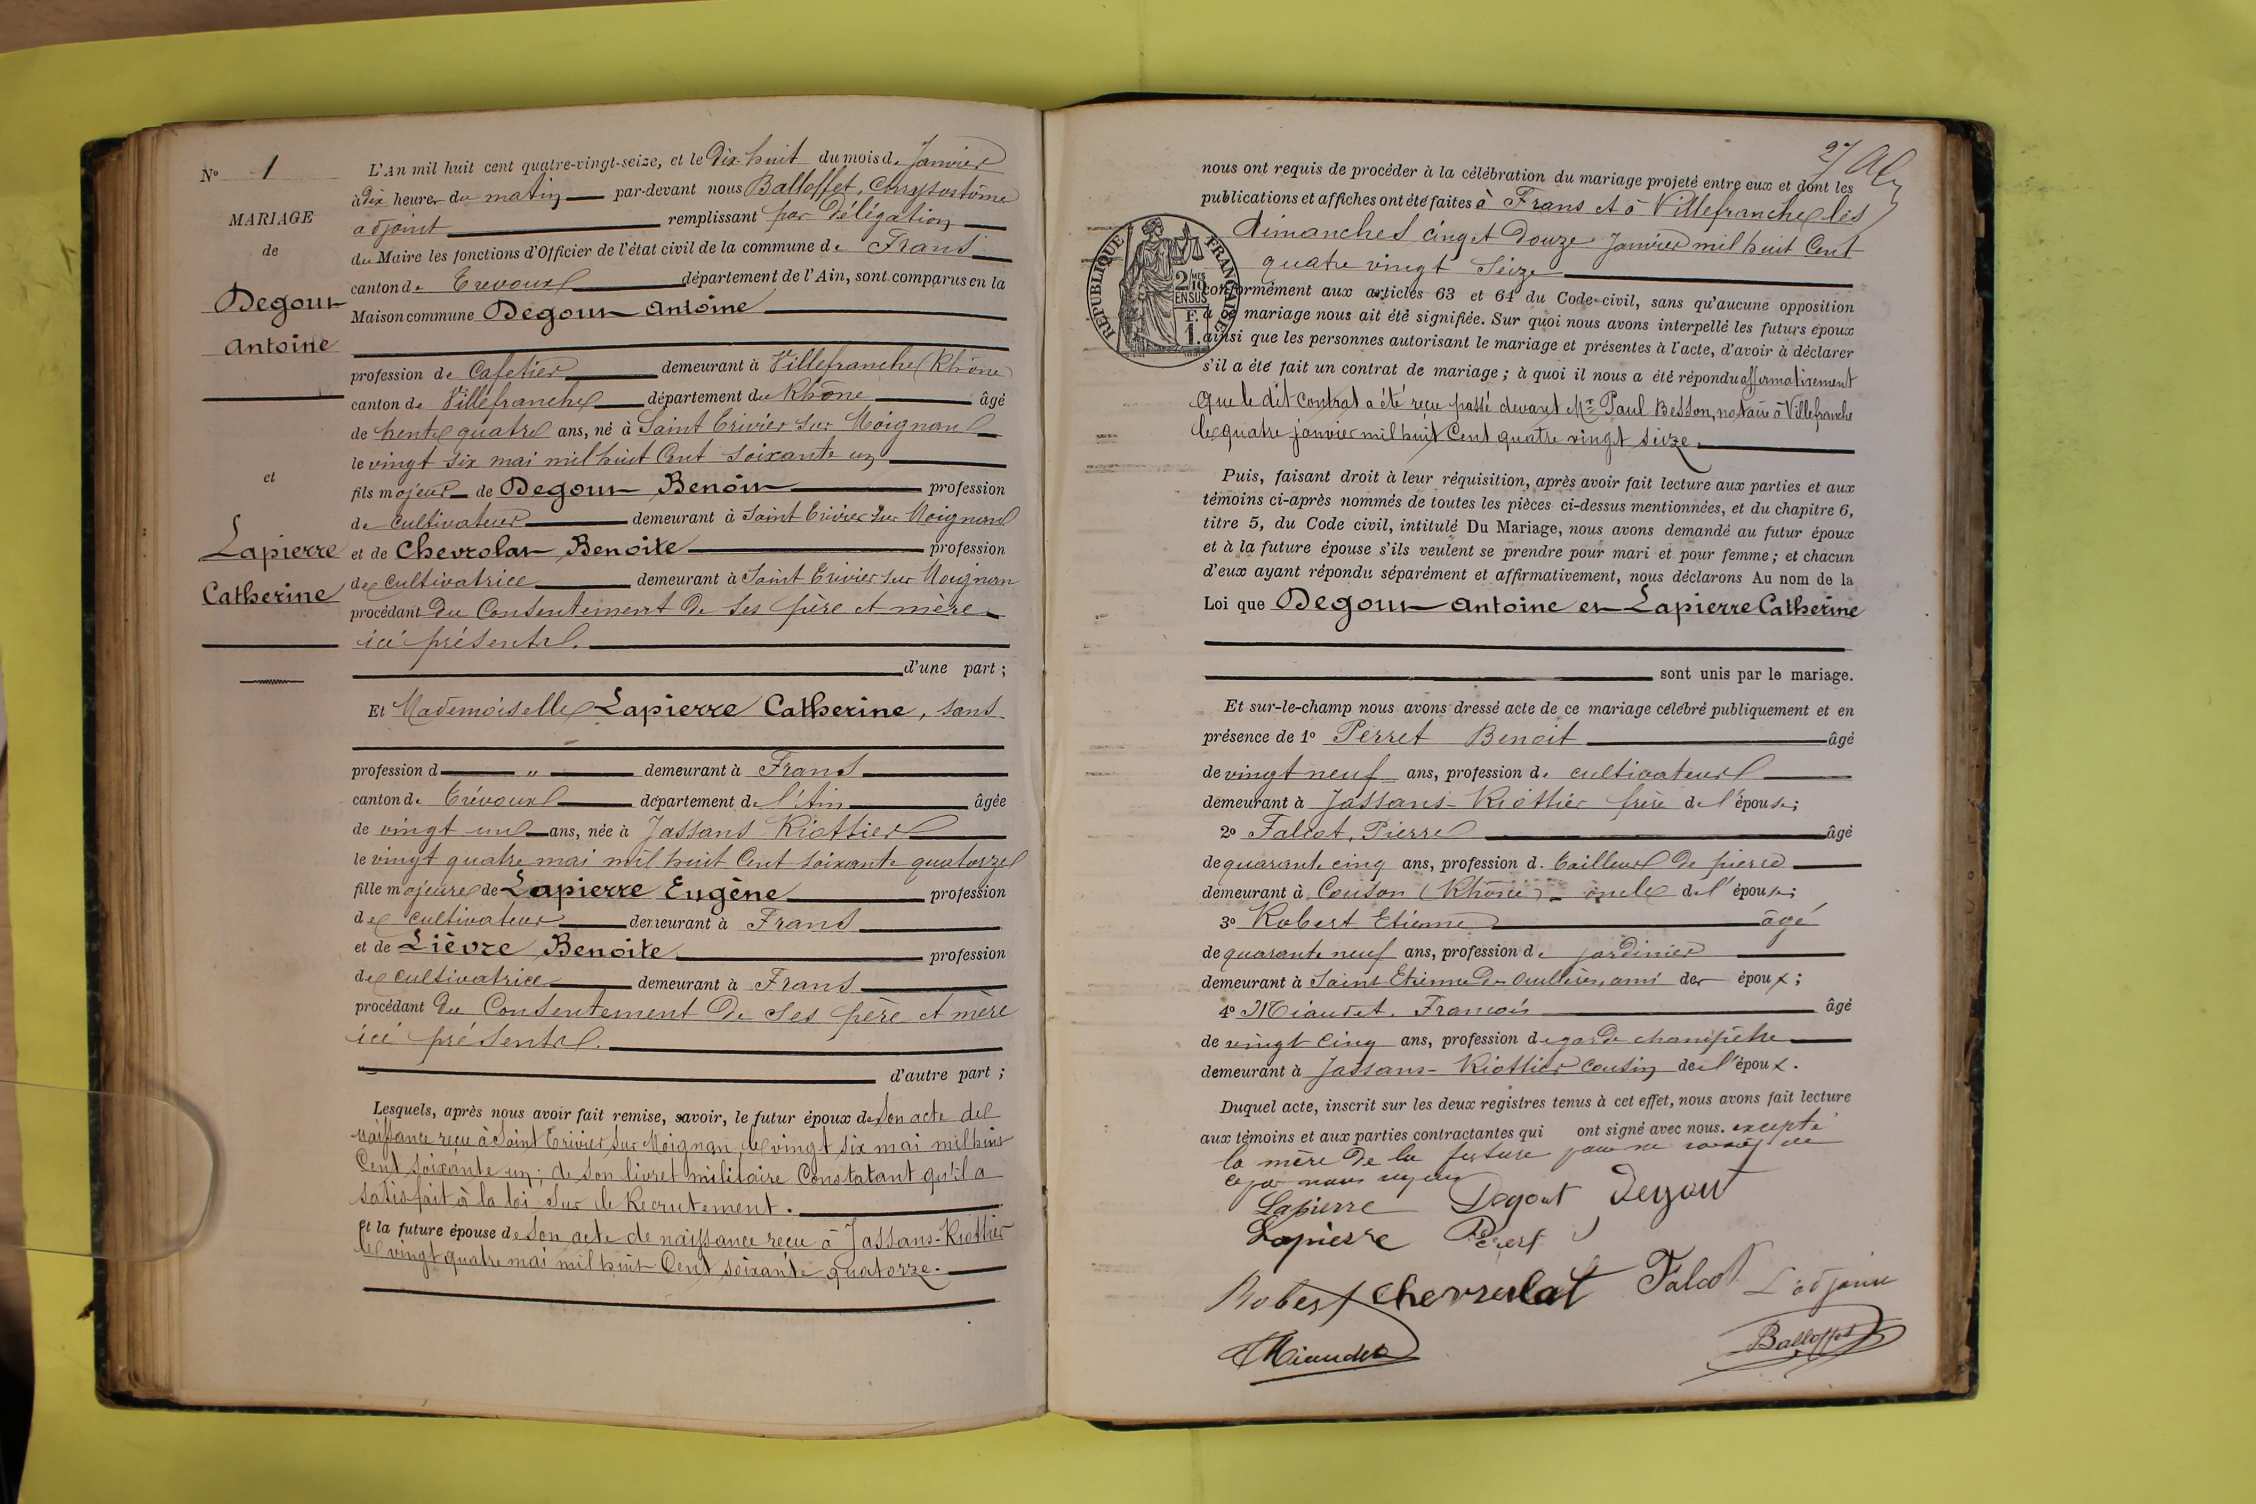 N° 1
MARIAGE
de
Degout
Antoine
et
Lapierre
Catherine
L'An mil huit cent quatre-vingt-seize, et le Dix-huit du mois de Janvier
à Dix heures du matin par-devant nous Balloffet, Chrysostôme
adjoint remplissant par Délégation
du Maire les fonctions d'Officier de l'état civil de la commune de Frans
canton de Trévoux département de l'Ain, sont comparus en la
Maison commune Degout Antoine
profession de Cafetier demeurant à Villefranche (Rhône
canton de Villefranche département du Rhône âgé
de trente quatre ans, né à Saint Trivier sur Moignans
le vingt six mai mil huit Cent soixante un
fils majeur de Degout Benoit profession
de cultivateur demeurant à Saint Trivier sur Moignans
et de Chevrolat Benoite profession
de cultivatrice demeurant à Saint Trivier sur Moignan
procédant du Consentement de ses père et mère
ici présents.
d'une part ;
Et Mademoiselle Lapierre Catherine, sans
profession d " demeurant à Frans
canton de Trévoux département de l'Ain âgée
de vingt un ans, née à Jassans Riottier
le vingt quatre mai mil huit Cent soixante quatorze
fille majeure de Lapierre Eugène profession
de cultivateur demeurant à Frans
et de Lièvre Benoite profession
de cultivatrice demeurant à Frans
procédant du Consentement de ses père et mère
ici présents.
d'autre part ;
Lesquels, après nous avoir fait remise, savoir, le futur époux de son acte de
naissance reçu à Saint Trivier sur Moignan, le vingt six mai mil huit
Cent soixante un; de son livret militaire Constatant qu'il a
satisfait à la loi sur le Recrutement.
Et la future épouse de son acte de naissance reçu à Jassans-Riottier
le vingt quatre mai mil huit Cent soixante quatorze.
27
nous ont requis de procéder à la célébration du mariage projeté entre eux et dont les
publications et affiches ont été faites à Frans et à Villefranche les
dimanches cinq et Douze Janvier mil huit Cent
quatre vingt Seize
RÉPUBLIQUE FRANÇAISE
2/10 EN SUS
F. 1.
conformément aux articles 63 et 64 du Code civil, sans qu'aucune opposition
à mariage nous ait été signifiée. Sur quoi nous avons interpellé les futurs époux
ainsi que les personnes autorisant le mariage et présentes à l'acte, d'avoir à déclarer
s'il a été fait un contrat de mariage ; à quoi il nous a été répondu affirmativement
que le dit contrat a été reçu passé devant Mr Paul Besson, notaire à Villefranche
le quatre janvier mil huit Cent quatre vingt seize.
Puis, faisant droit à leur réquisition, après avoir fait lecture aux parties et aux
témoins ci-après nommés de toutes les pièces ci-dessus mentionnées, et du chapitre 6,
titre 5, du Code civil, intitulé Du Mariage, nous avons demandé au futur époux
et à la future épouse s'ils veulent se prendre pour mari et pour femme ; et chacun
d'eux ayant répondu séparément et affirmativement, nous déclarons Au nom de la
Loi que Degout Antoine et Lapierre Catherine
sont unis par le mariage.
Et sur-le-champ nous avons dressé acte de ce mariage célébré publiquement et en
présence de 1° Perret Benoit âgé
de vingt neuf ans, profession de cultivateur
demeurant à Jassans-Riottier frère de l'épouse;
2° Falcot, Pierre âgé
de quarante cinq ans, profession de tailleur de pierre
demeurant à Couson (Rhône) - oncle de l'épouse;
3° Robert Etienne âgé
de quarante neuf ans, profession de jardinier
demeurant à Saint Etienne des Oullières, ami des époux ;
4° Miaudet, François âgé
de vingt cinq ans, profession de garde champêtre
demeurant à Jassans-Riottier cousin de l'époux.
Duquel acte, inscrit sur les deux registres tenus à cet effet, nous avons fait lecture
aux témoins et aux parties contractantes qui ont signé avec nous. excepté
la mère de la future pour ne savoir de
ce par nous requis
Lapierre Degout Degout
Lapierre Perret
Robert Chevrolat Falcot L'adjoint
Miaudet Balloffet